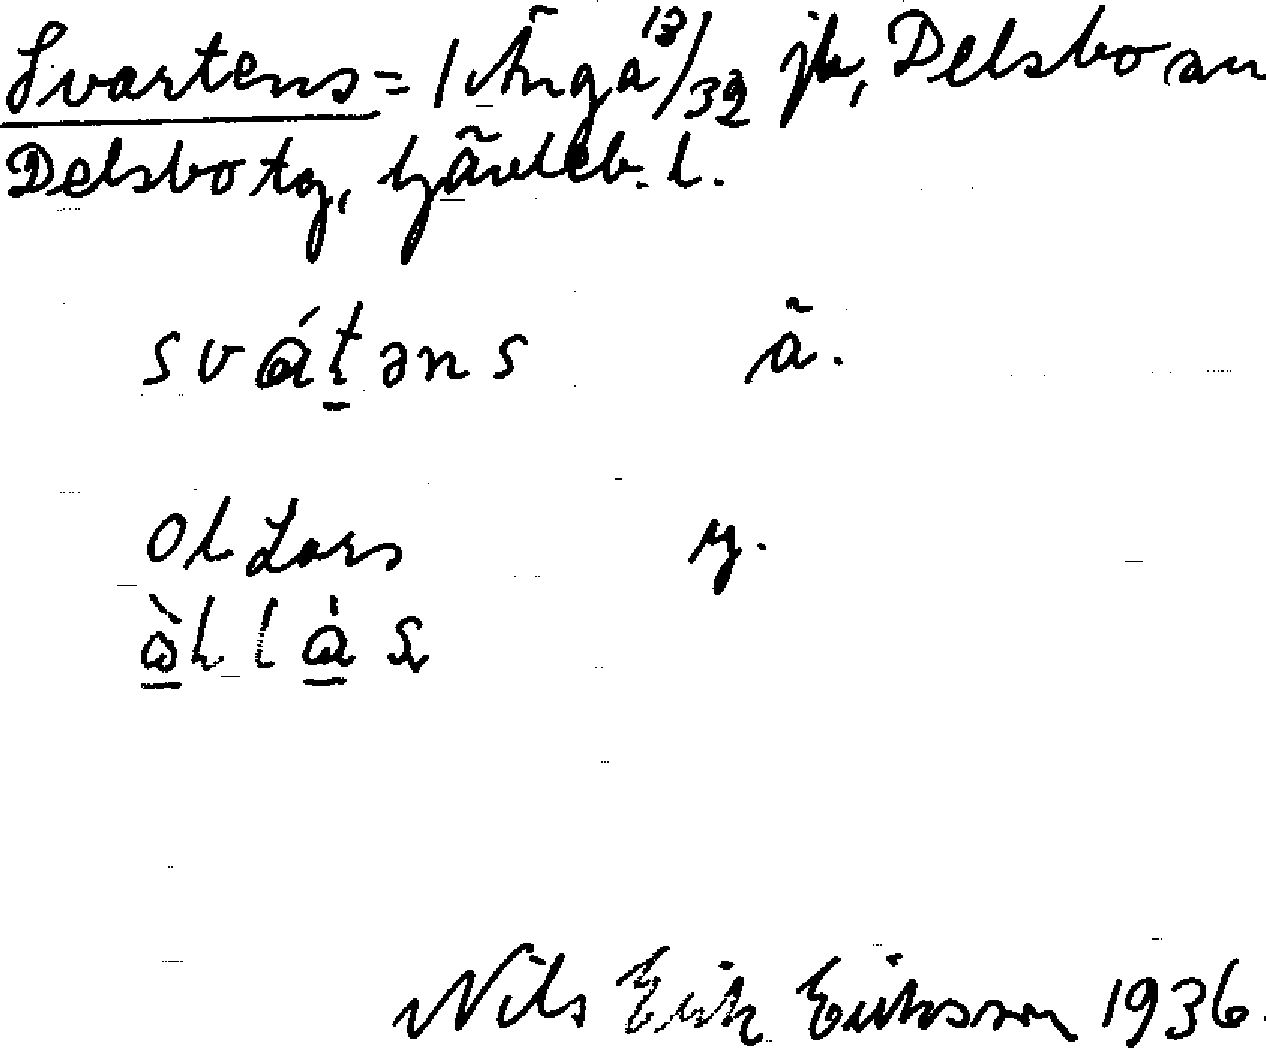 Svartens = 1 Änga 13/32 jb, Delsbo sn
Delsbo tg, Gävleb. l.
svátəns ä.
Ol Lars y.
òllàs
Nils Erik Eriksson 1936.